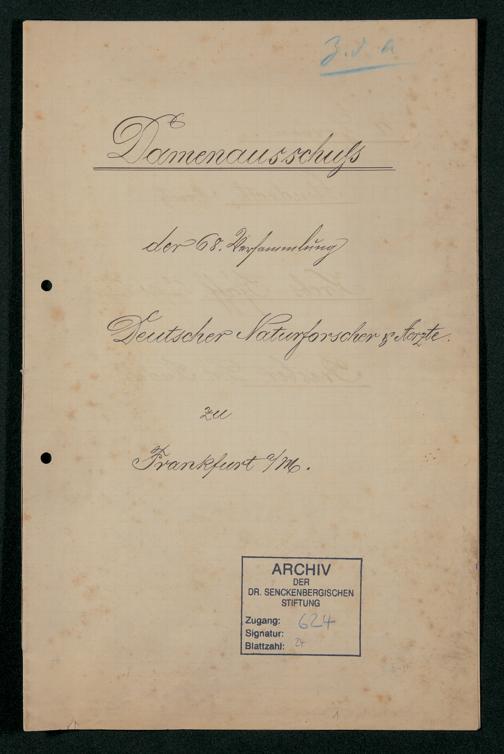 Z. d. A
Damenausschuss
der 68. Versammlung
Deutscher Naturforscher & Aerzte.
zu
Frankfurt a/M.
ARCHIV
DER
DR. SENCKENBERGISCHEN
STIFTUNG
Zugang: 624
Signatur:
Blattzahl: 24